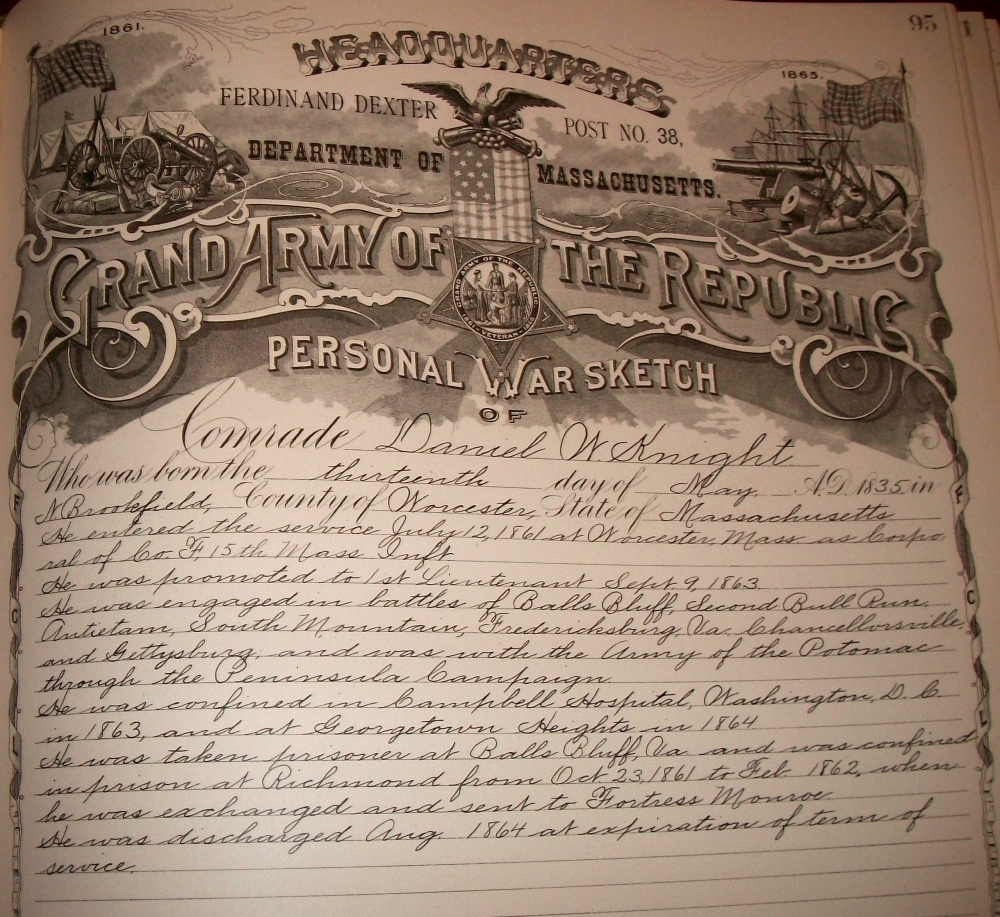 95
1
1861.
HEADQUARTERS
1865.
FERDINAND DEXTER POST NO. 38,
DEPARTMENT OF MASSACHUSETTS.
GRAND ARMY OF THE REPUBLIC
GRAND ARMY OF THE REPUBLIC
1861 - VETERAN - 1866
PERSONAL WAR SKETCH
OF
Comrade Daniel W Knight
Who was born the thirteenth day of May A.D. 1835 in
N Brookfield, County of Worcester, State of Massachusetts
He entered the service July 12, 1861 at Worcester, Mass as Corpo-
ral of Co. F 15th Mass Inft
He was promoted to 1st Lieutenant Sept 9, 1863
He was engaged in battles of Balls Bluff, Second Bull Run,
Antietam, South Mountain, Fredericksburg, Va. Chancellorsville,
and Gettysburg, and was with the Army of the Potomac
through the Peninsula Campaign
He was confined in Campbell Hospital, Washington, D. C.
in 1863, and at Georgetown Heights in 1864
He was taken prisoner at Balls Bluff, Va. and was confined
in prison at Richmond from Oct 23, 1861 to Feb 1862, when
he was exchanged and sent to Fortress Monroe.
He was discharged Aug. 1864 at expiration of term of
service.
F
C
L
F
C
L